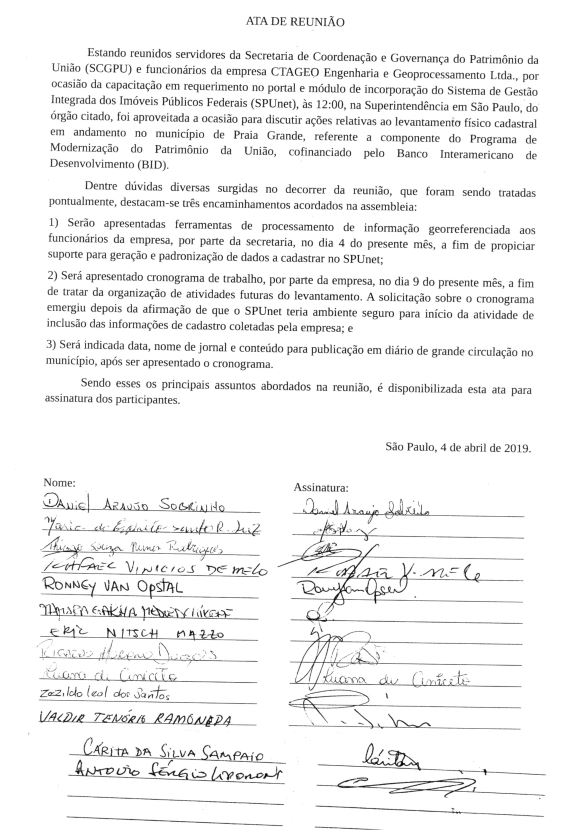 ATA DE REUNIÃO
Estando reunidos servidores da Secretaria de Coordenação e Governança do Patrimônio da
União (SCGPU) e funcionários da empresa CTAGEO Engenharia e Geoprocessamento Ltda., por
ocasião da capacitação em requerimento no portal e módulo de incorporação do Sistema de Gestão
Integrada dos Imóveis Públicos Federais (SPUnet), às 12:00, na Superintendência em São Paulo, do
órgão citado, foi aproveitada a ocasião para discutir ações relativas ao levantamento físico cadastral
em andamento no município de Praia Grande, referente a componente do Programa de
Modernização do Patrimônio da União, cofinanciado pelo Banco Interamericano de
Desenvolvimento (BID).
Dentre dúvidas diversas surgidas no decorrer da reunião, que foram sendo tratadas
pontualmente, destacam-se três encaminhamentos acordados na assembleia:
1) Serão apresentadas ferramentas de processamento de informação georreferenciada aos
funcionários da empresa, por parte da secretaria, no dia 4 do presente mês, a fim de propiciar
suporte para geração e padronização de dados a cadastrar no SPUnet;
2) Será apresentado cronograma de trabalho, por parte da empresa, no dia 9 do presente mês, a fim
de tratar da organização de atividades futuras do levantamento. A solicitação sobre o cronograma
emergiu depois da afirmação de que o SPUnet teria ambiente seguro para início da atividade de
inclusão das informações de cadastro coletadas pela empresa; e
3) Será indicada data, nome de jornal e conteúdo para publicação em diário de grande circulação no
município, após ser apresentado o cronograma.
Sendo esses os principais assuntos abordados na reunião, é disponibilizada esta ata para
assinatura dos participantes.
São Paulo, 4 de abril de 2019.
Nome: Assinatura:
DANIEL ARAUJO SOBRINHO Daniel Araujo Sobrinho
Maria do Espírito Santo R. Luz
Thiago Souza
RAFAEL VINICIOS DE MELO
RONNEY VAN OPSTAL
ERIC NITSCH MAZZO
Ricardo
Luana de Aniceto Luana de Aniceto
Zozildo Leal dos Santos
VALDIR TENÓRIO RAMONEDA
CÁRITA DA SILVA SAMPAIO Cárita
ANTONIO SÉRGIO